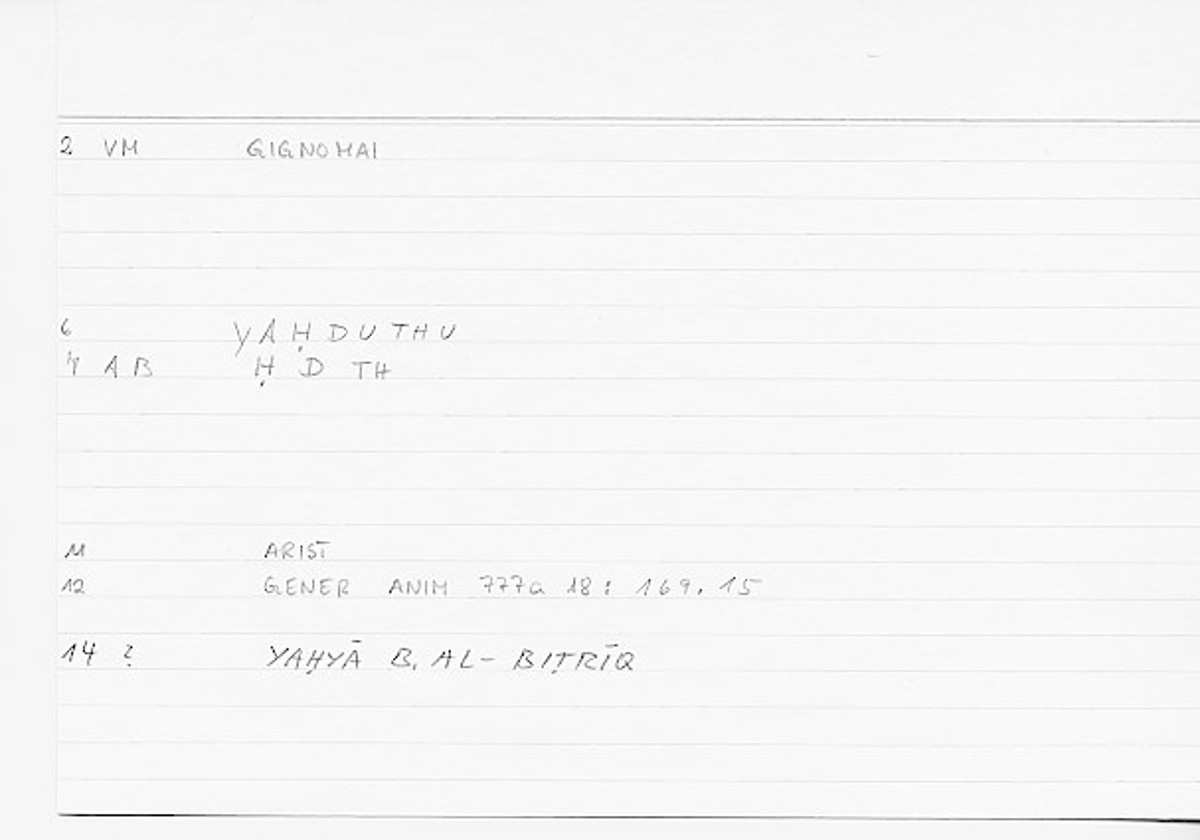 2 VM GIGNOMAI
6 YAḤDUTHU
7 AB ḤDTH
11 ARIST
12 GENER ANIM 777a 18: 169.15
14 ? YAḤYĀ B. AL-BIṬRĪQ